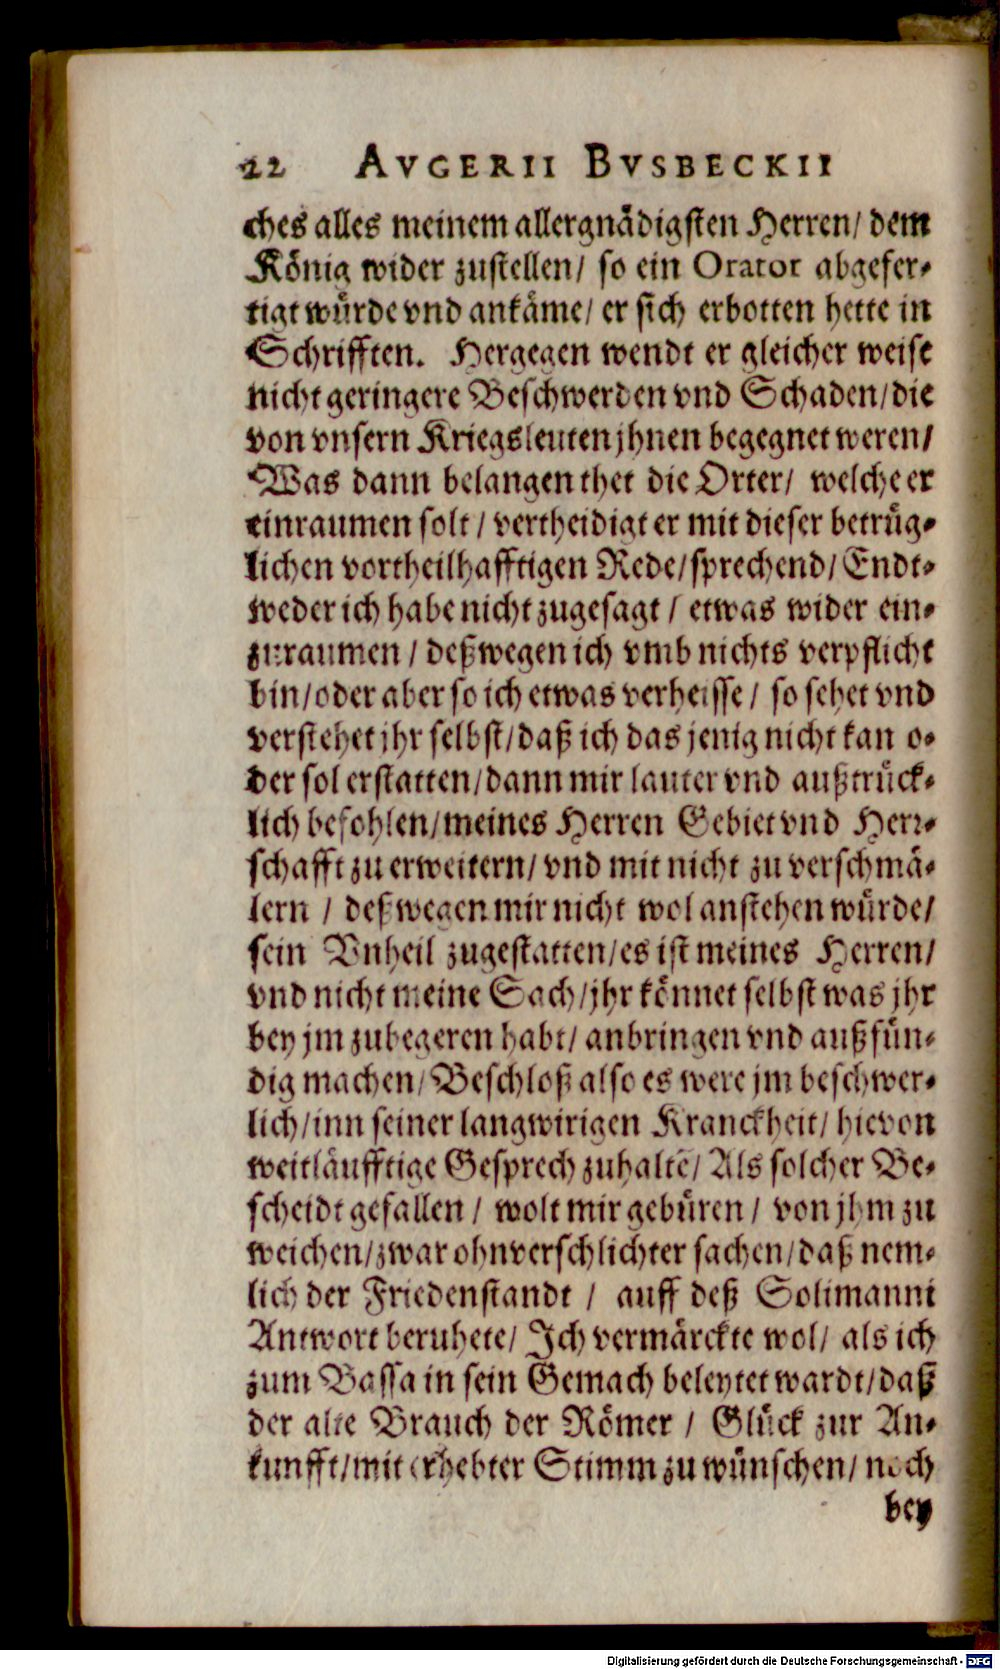 22 AVGERII BVSBECKII
ches alles meinem allergnådigsten Herren/ dem
König wider zustellen/ so ein Orator abgefer-
tigt wůrde vnd ankåme/ er sich erbotten hette in
Schrifften. Hergegen wendt er gleicher weise
nicht geringere Beschwerden vnd Schaden/ die
von vnsern Kriegsleuten jhnen begegnet weren/
Was dann belangen thet die Orter/ welche er
einraumen solt/ vertheidigt er mit dieser betrůg-
lichen vortheilhafftigen Rede/ sprechend/ Endt-
weder ich habe nicht zugesagt/ etwas wider ein-
zuraumen/ deßwegen ich vmb nichts verpflicht
bin/ oder aber so ich etwas verheisse/ so sehet vnd
verstehet jhr selbst/ daß ich das jenig nicht kan o-
der sol erstatten/ dann mir lauter vnd außtrůck-
lich befohlen/ meines Herren Gebiet vnd Herr-
schafft zu erweitern/ vnd mit nicht zu verschmå-
lern/ deßwegen mir nicht wol anstehen wůrde/
sein Vnheil zugestatten/ es ist meines Herren/
vnd nicht meine Sach/ jhr kőnnet selbst was jhr
bey jm zubegeren habt/ anbringen vnd außfůn-
dig machen/ Beschloß also es were jm beschwer-
lich/ inn seiner langwirigen Kranckheit/ hievon
weitläufftige Gesprech zuhaltē/ Als solcher Be-
scheidt gefallen/ wolt mir gebůren/ von jhm zu
weichen/ zwar ohnverschlichter sachen/ daß nem-
lich der Friedenstandt/ auff deß Solimanni
Antwort beruhete/ Ich vermårckte wol/ als ich
zum Bassa in sein Gemach beleytet wardt/ daß
der alte Brauch der Römer/ Glůck zur An-
kunfft/ mit erhebter Stimm zu wůnschen/ noch
bey
Digitalisierung gefördert durch die Deutsche Forschungsgemeinschaft - DFG